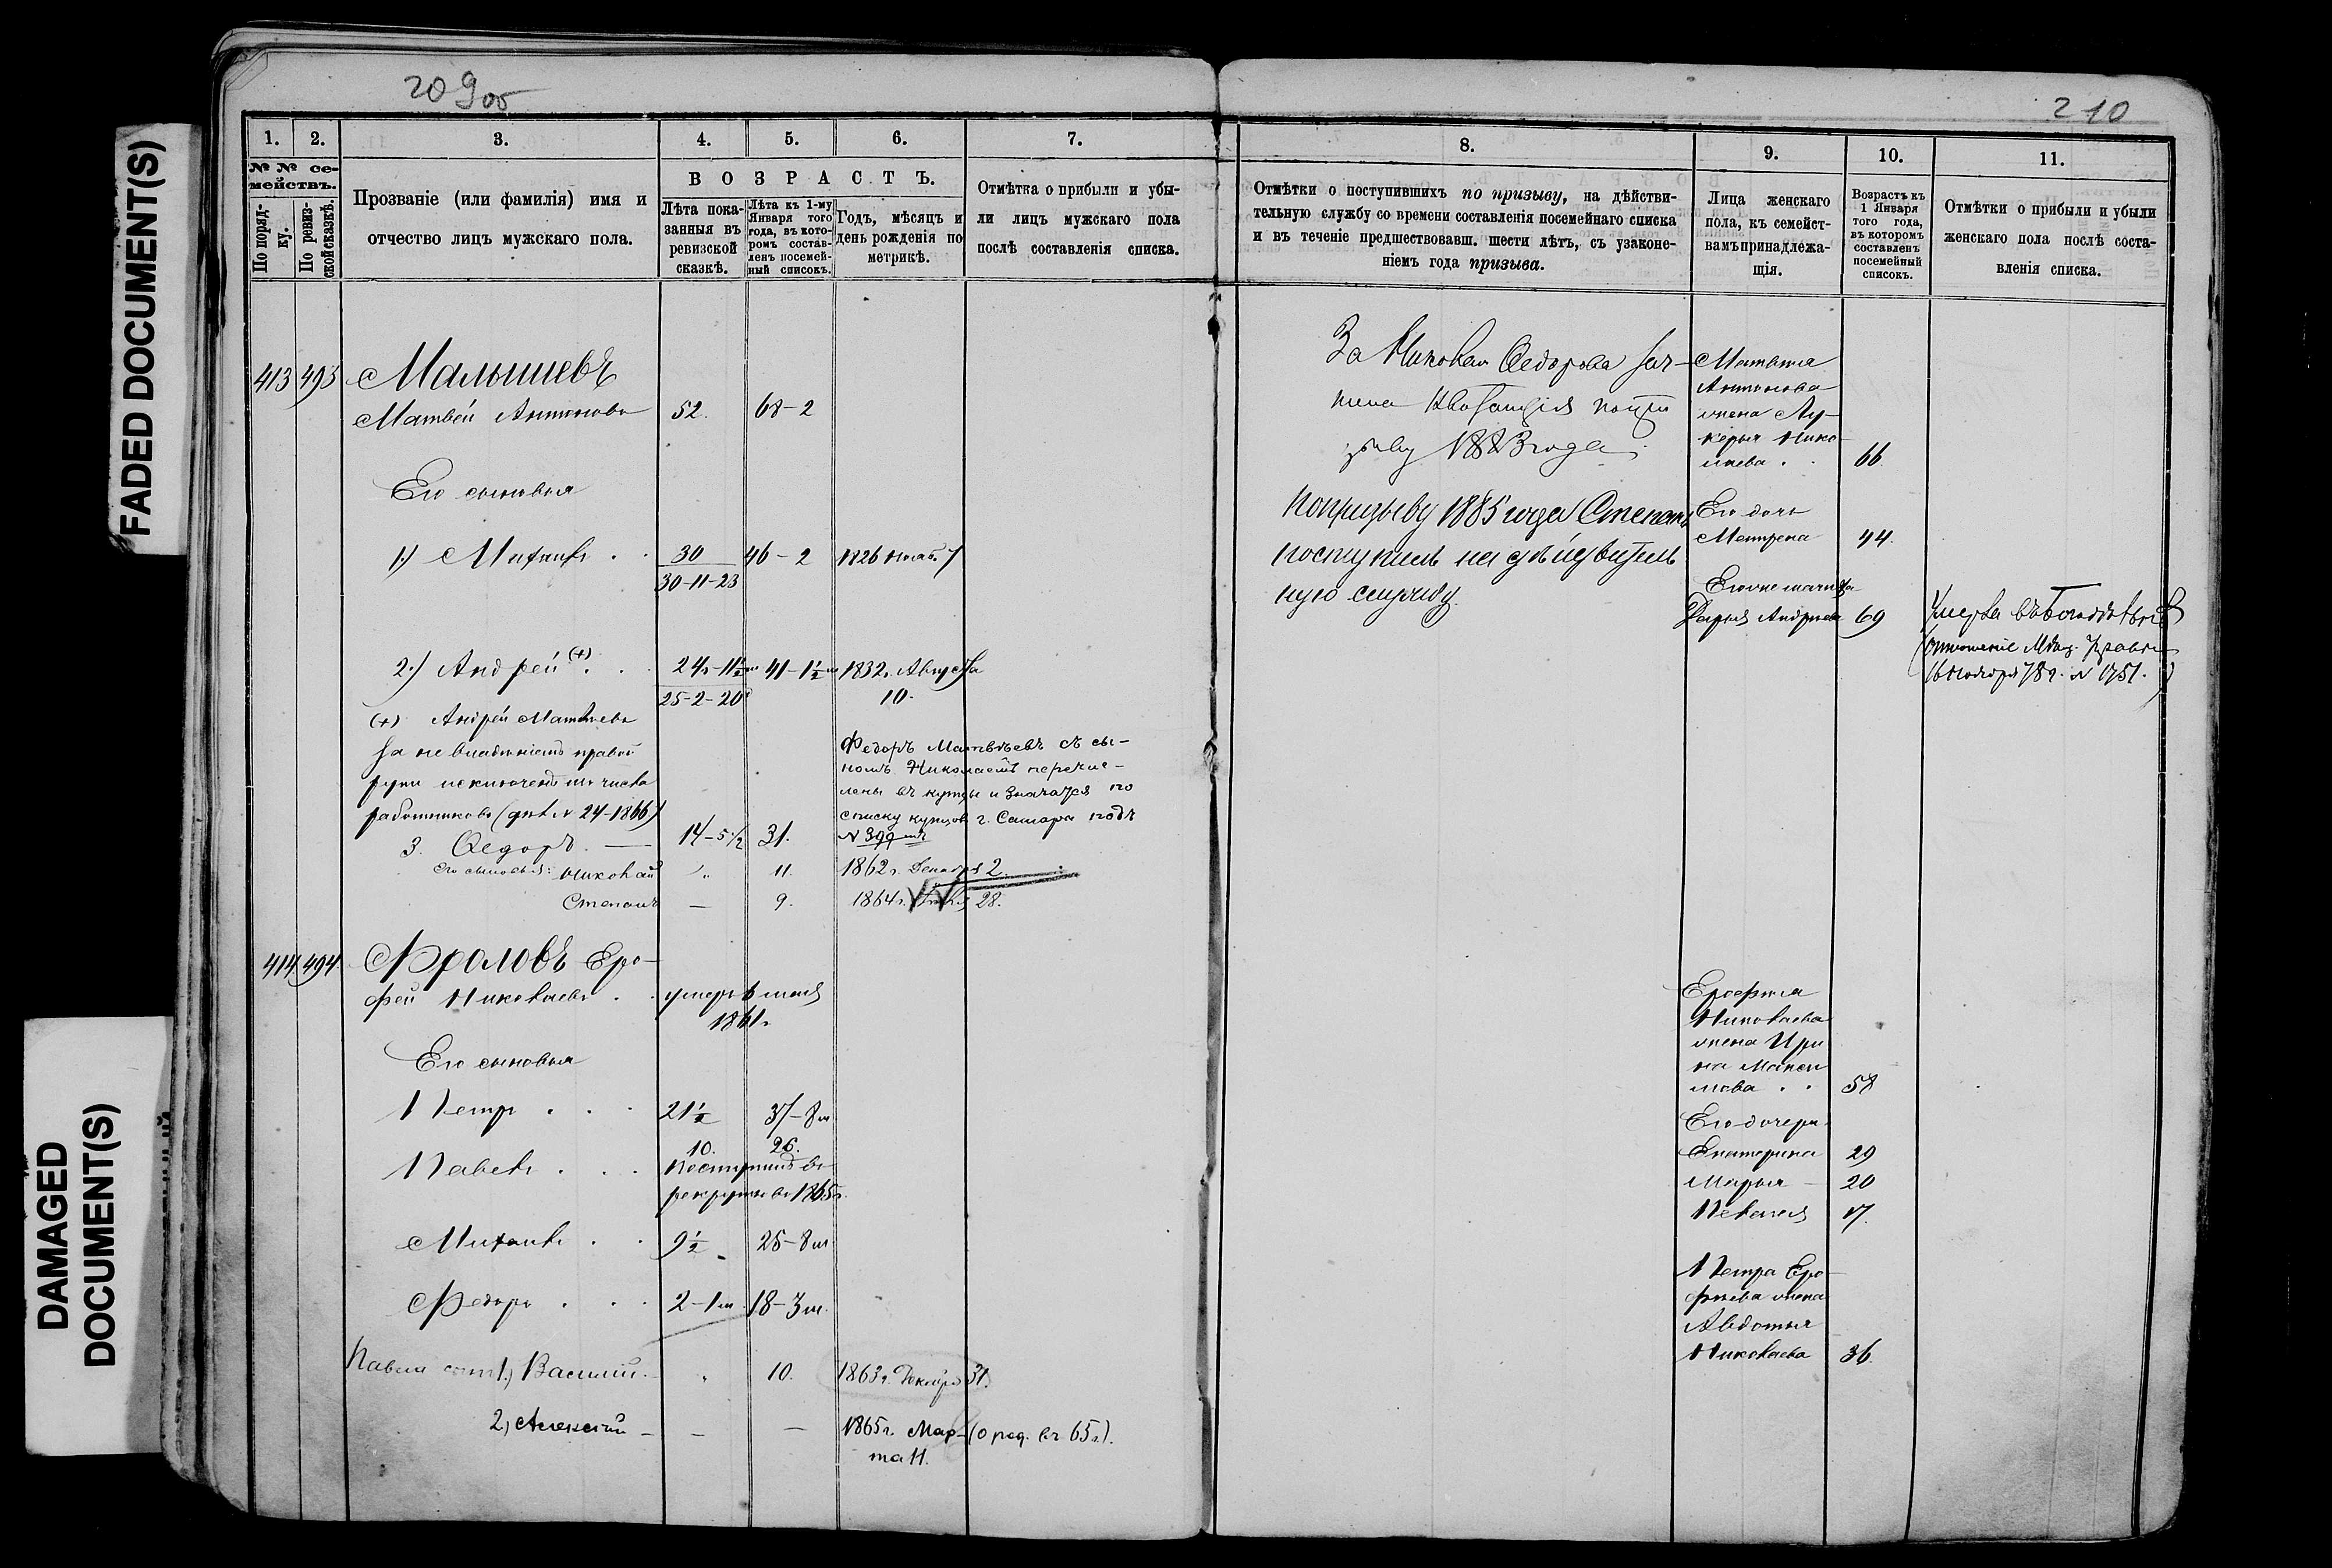 FADED DOCUMENT(S)
DAMAGED
DOCUMENT(S)
209об
1. 2. 3. 4. 5. 6. 7.
№ № се-
мействъ.
По поряд-
ку.
По ревиз-
ской сказкѣ.
Прозваніе (или фамилія) имя и
отчество лицъ мужскаго пола.
ВОЗРАСТЪ.
Лѣта пока-
занныя въ
ревизской
сказкѣ.
Лѣта къ 1-му
Января того
года, въ кото-
ромъ состав-
ленъ посемей-
ный списокъ.
Годъ, мѣсяцъ и
день рожденія по
метрикѣ.
Отмѣтка о прибыли и убы-
ли лицъ мужскаго пола
послѣ составленія списка.
413 493 Малышевъ
Матвей Антоновъ 52. 68-2
Его сыновья
1) Михаилъ 30 46-2 1826 Нояб. 7
30-11-23
2) Андрей (+) 24-11½ м 41-1½ м 1832г. Августа
25-2-20 10.
(+) Андрей Матвеевъ
за не владѣніемъ правой
руки исключенъ изъ числа
работниковъ (дѣл. № 24-1866)
Федоръ Матвѣевъ съ сы-
номъ Николаемъ перечис-
лены въ купцы и значатся по
списку купцов г. Самара подъ
№ 399
3. Ѳедоръ 14-5½ 31.
Его сыновья: Николай „ 11. 1862 г. Декабря 2.
Степанъ — 9. 1864 г. 28.
414 494 Фроловъ Еро-
фей Николаевъ умеръ в
1861г
Его сыновья
Петръ 21½ 37-8м
10. 26.
Павелъ Поступилъ въ
рекруты въ 1865г.
Михаилъ 9½ 25-8м
Федоръ 2-1м 18-3м.
Павла сын. 1) Василий. „ 10. 1863 г. Декабря 31.
2) Алексѣй — — — 1865 г. Мар- (о род. въ 65 г.).
та 11.
210
8. 9. 10. 11.
Отмѣтки о поступившихъ по призыву, на дѣйстви-
тельную службу со времени составленія посемейнаго списка
и въ теченіе предшествовавш. шести лѣтъ, съ узаконе-
ніемъ года призыва.
Лица женскаго
пола, къ семейст-
вамъ принадлежа-
щія.
Возрастъ къ
1 Января
того года,
въ которомъ
составленъ
посемейный
списокъ.
Отмѣтки о прибыли и убыли
женскаго пола послѣ соста-
вленія списка.
За Николая Ѳедорова зач-
тена Квитанція по при
зыву 1883 года
По призыву 1885 года Степанъ
поступилъ на дѣйствитель
ную службу.
Матвея
Антонова
жена Лу-
керья Нико-
лаева 66
Его дочь
Матрена 44.
Его же мачиха
Дарья Андреева 69
Умерла въ Богадѣльнѣ
(отношеніе Мѣщ. Управы
16 Ноября 78 г. № 1751.)
Ерофея
Николаева
жена Ири
на Макси
мова 58
Его дочери
Екатерина 29
Марья 20
Пелагея 17.
Петра Еро-
фѣева жена
Авдотья
Николаева 36.